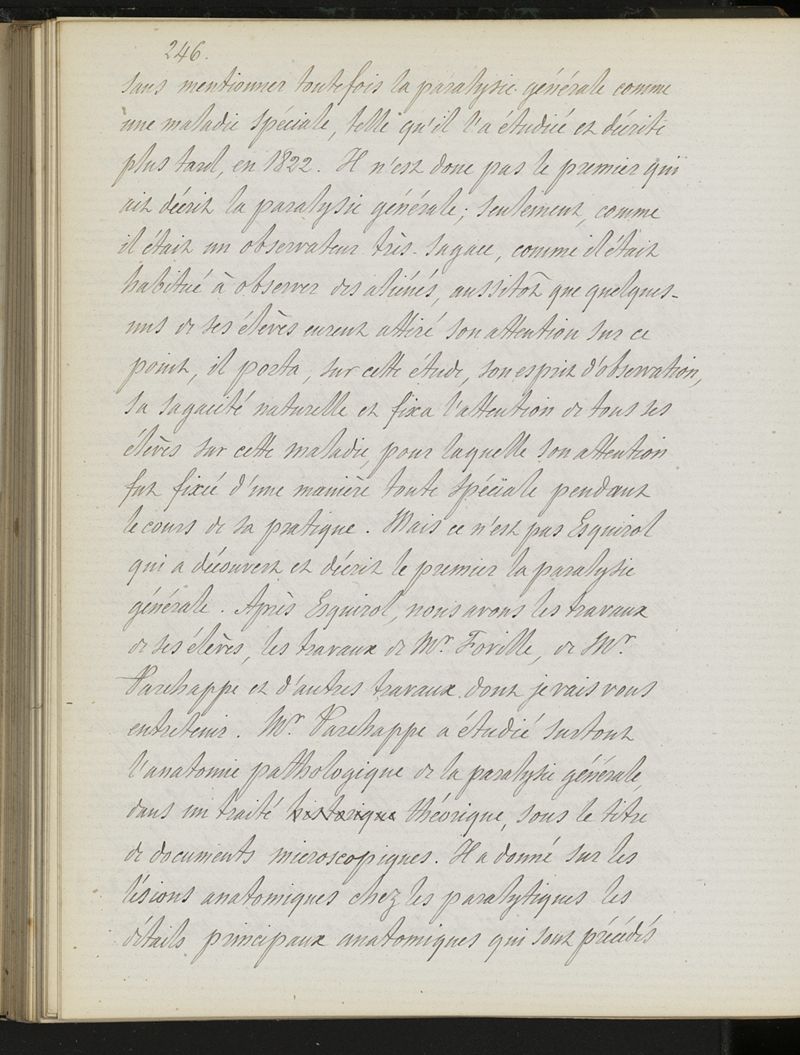 246.
sans mentionner toutefois la paralysie générale comme
une maladie spéciale, telle qu'il l'a étudiée et décrite
plus tard, en 1822. Il n'est donc pas le premier qui
ait décrit la paralysie générale; seulement, comme
il était un observateur très-sagace, comme il était
habitué à observer des aliénés, aussitôt que quelques-
uns de ses élèves eurent attiré son attention sur ce
point, il porta, sur cette étude, son esprit d'observation,
sa sagacité naturelle et fixa l'attention de tous ses
élèves sur cette maladie pour laquelle son attention
fut fixée d'une manière toute spéciale pendant
le cours de sa pratique. Mais ce n'est pas Esquirol
qui a découvert et décrit le premier la paralysie
générale. Après Esquirol, nous avons les travaux
de ses élèves, les travaux de Mr. Foville, de Mr.
Parchappe et d'autres travaux dont je vais vous
entretenir. Mr. Parchappe a étudié surtout
l'anatomie pathologique de la paralysie générale,
dans un traité historique théorique, sous le titre
de documents microscopiques. Il a donné sur les
lésions anatomiques chez les paralytiques les
détails principaux anatomiques qui sont précédés